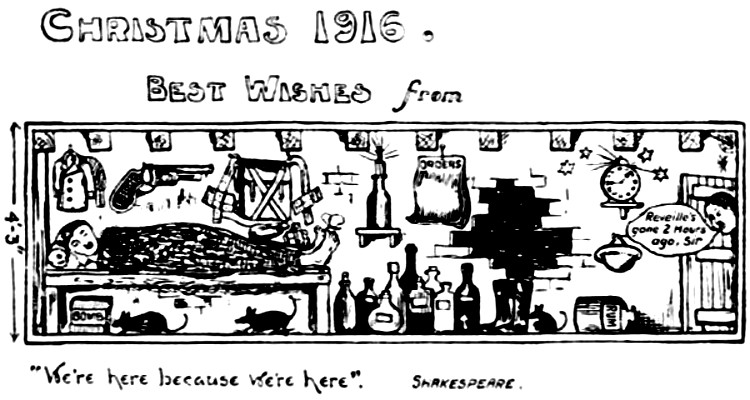 CHRISTMAS 1916.
BEST WISHES from
4'-3"
ORDERS
"Reveille's
gone 2 Hours
ago, Sir
BOMB
RUM
"We're here because we're here".
SHAKESPEARE.